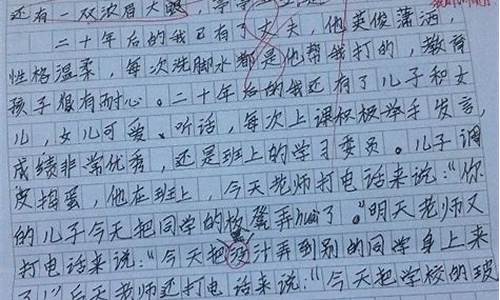 还有一双浓眉大眼,
二十年后的我已有了丈夫,他英俊潇洒,
性格温柔,每次洗脚水都是他帮我打的,教育
孩子很有耐心。二十年后的我还有了儿子和女
儿,女儿可爱、听话,每次上课积极举手发言,
成绩非常优秀,还是班上的学习委员。儿子调
皮捣蛋,他在班上,今天老师打电话来说:“你
的儿子今天把同学的板凳弄huai了。”明天老师又
打电话来说:“今天把汁弄到别的同学身上来
了”后天老师还打电话来说:“今天把学校的玻